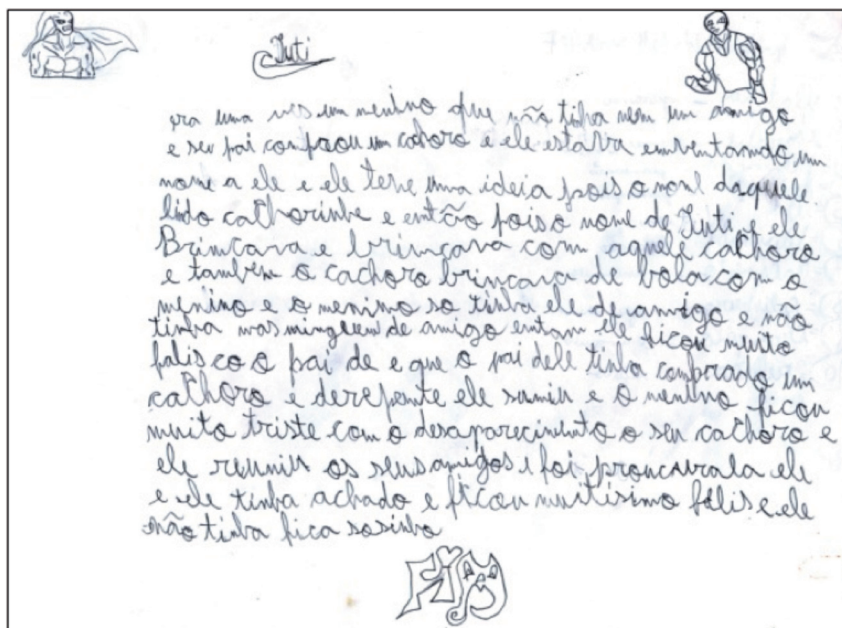 Tuti
era uma ves um menino que não tinha nem um amigo
e seu pai conprou um cahoro e ele estava emventamdo um
nome a ele e ele teve uma ideia pois o nome daquele
lido cathorinho e então pois o nome de Tuti e ele
Brimcava e brimcava com aquele cathoro
e tambem o cachoro brincava de bola com o
menino e o menimo so tinha ele de amigo e não
tinha mas mimguem de amigo entam ele ficou muito
falis co o pai de e que o pai dele tinha comprado um
cathoro e derepente ele sumiu e o menino ficou
muito triste com o desaparecimento o seu cathoro e
ele reuniu os seus amigos e foi prouncurala ele
e ele tinha achado e ficou muitisimo felis e ele
não tinha fica sosinho
FiM